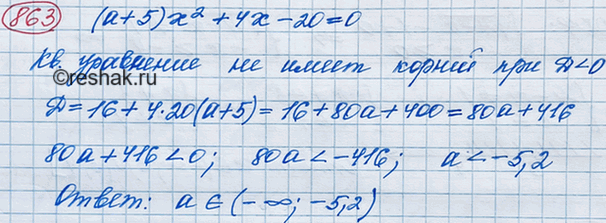 863 (a+5)x² + 4x - 20 = 0
Кв. уравнение не имеет корней при D<0
©reshak.ru
D = 16 + 4·20(a+5) = 16 + 80a + 400 = 80a + 416
80a + 416 < 0; 80a < -416; a < -5,2
Ответ: a ∈ (-∞; -5,2)